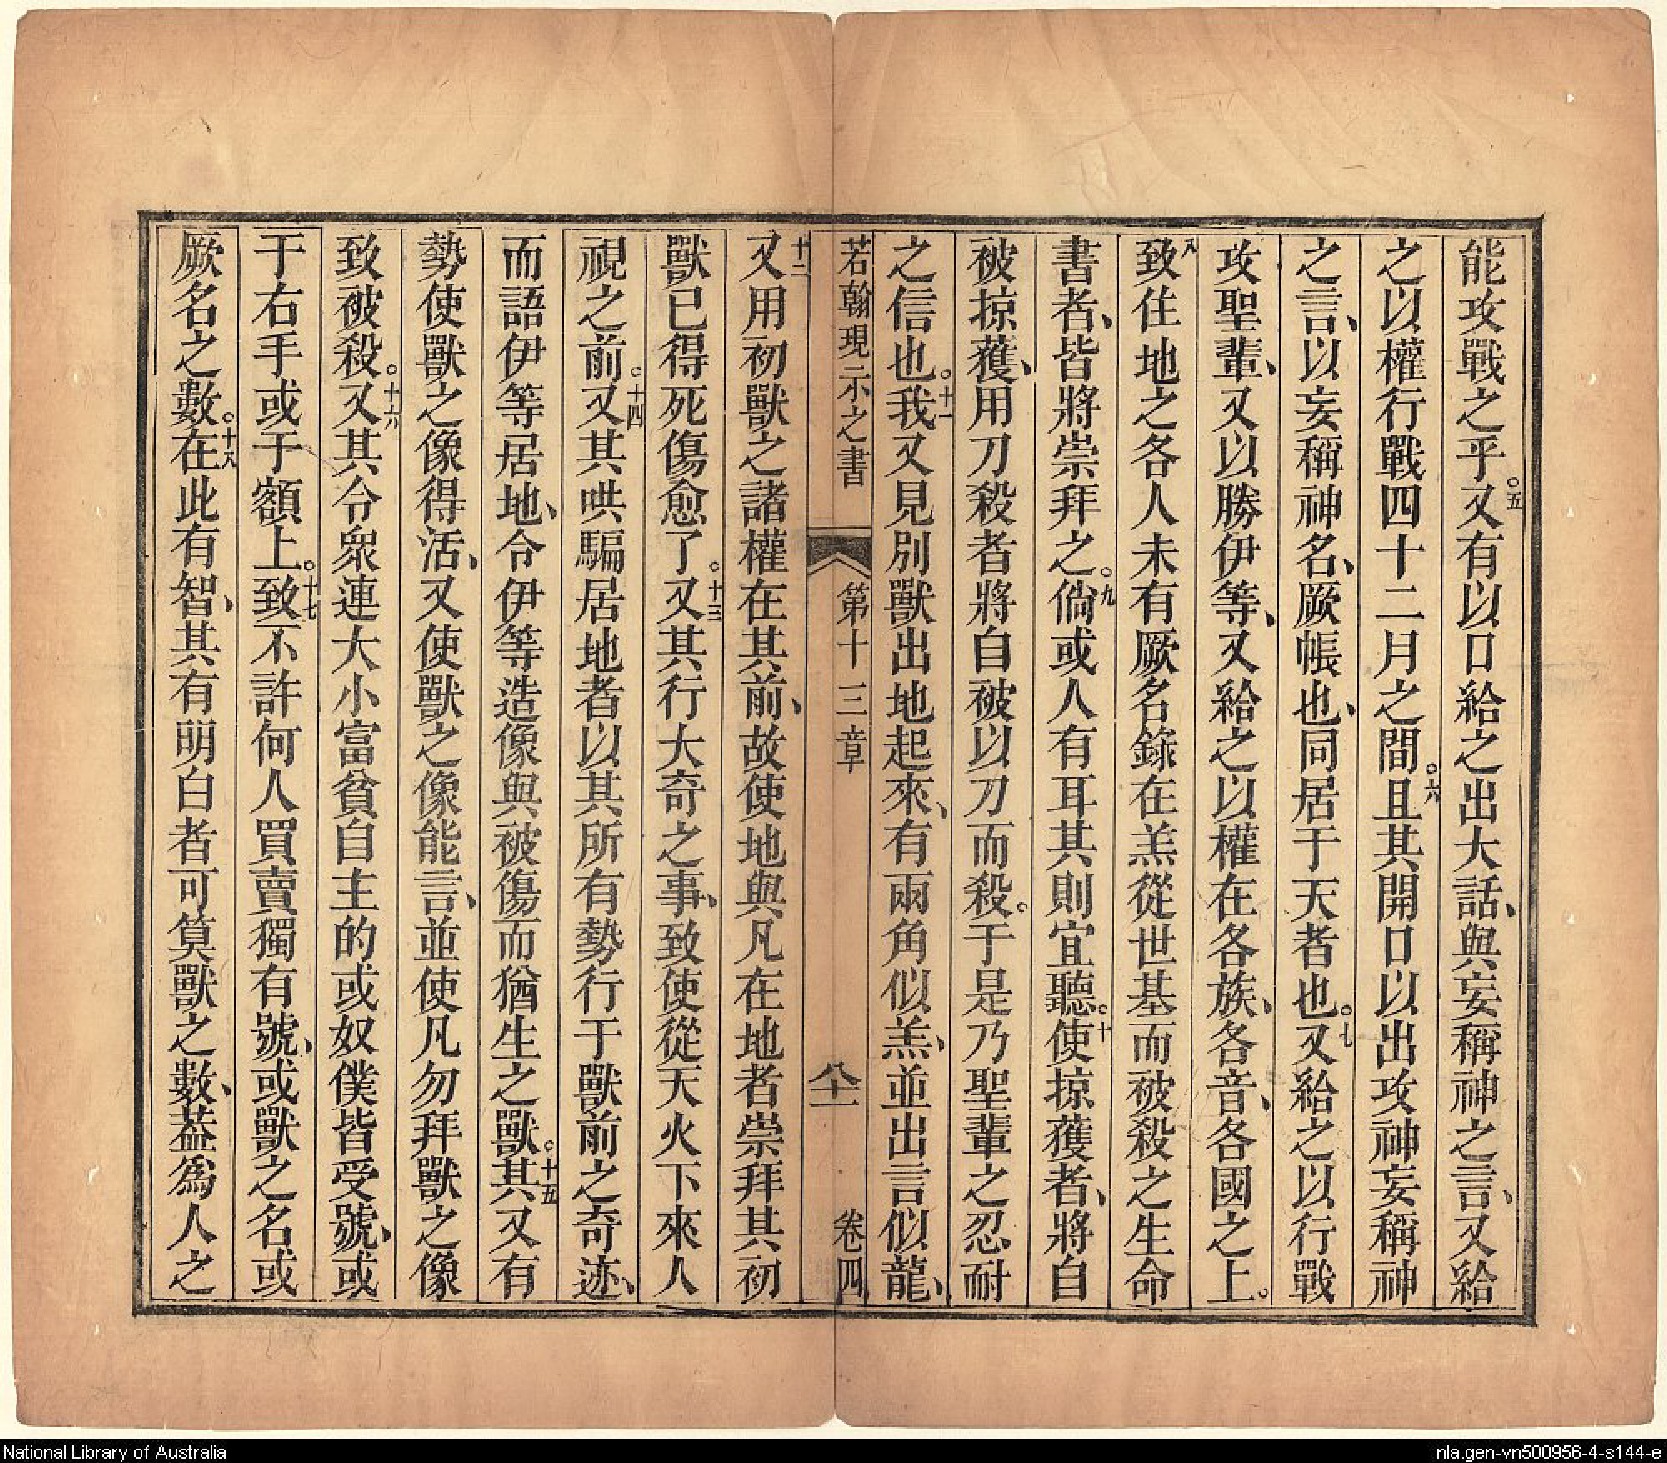 能攻戰之乎○五又有以口給之出大話、與妄稱神之言、又給
之以權行戰四十二月之間○六且其開口以出攻神妄稱神
之言、以妄稱神名、厥帳也、同居于天者也○七又給之以行戰
攻聖輩、又以勝伊等、又給之以權在各族、各音、各國之上。
八致住地之各人未有厥名錄在羔從世基而被殺之生命
書者、皆將崇拜之○九倘或人有耳其則宜聽○十使掠獲者、將自
被掠獲、用刀殺者將自被以刀而殺。于是乃聖輩之忍耐
之信也○十一我又見別獸出地起來、有兩角似羔、並出言似龍、
若翰現示之書 第十三章 八十一 卷四
十二又用初獸之諸權在其前、故使地與凡在地者崇拜其初
獸已得死傷愈了○十三又其行大奇之事、致使從天火下來人
視之前○十四又其哄騙居地者以其所有勢行于獸前之奇迹、
而語伊等居地、令伊等造像與被傷而猶生之獸○十五其又有
勢使獸之像得活、又使獸之像能言、並使凡勿拜獸之像
致被殺○十六又其令眾連大小富貧自主的或奴僕皆受號、或
于右手或于額上○十七致不許何人買賣獨有號、或獸之名或
厥名之數○十八在此有智、其有明白者可算獸之數、蓋為人之
National Library of Australia
nla.gen-vn500956-4-s144-e